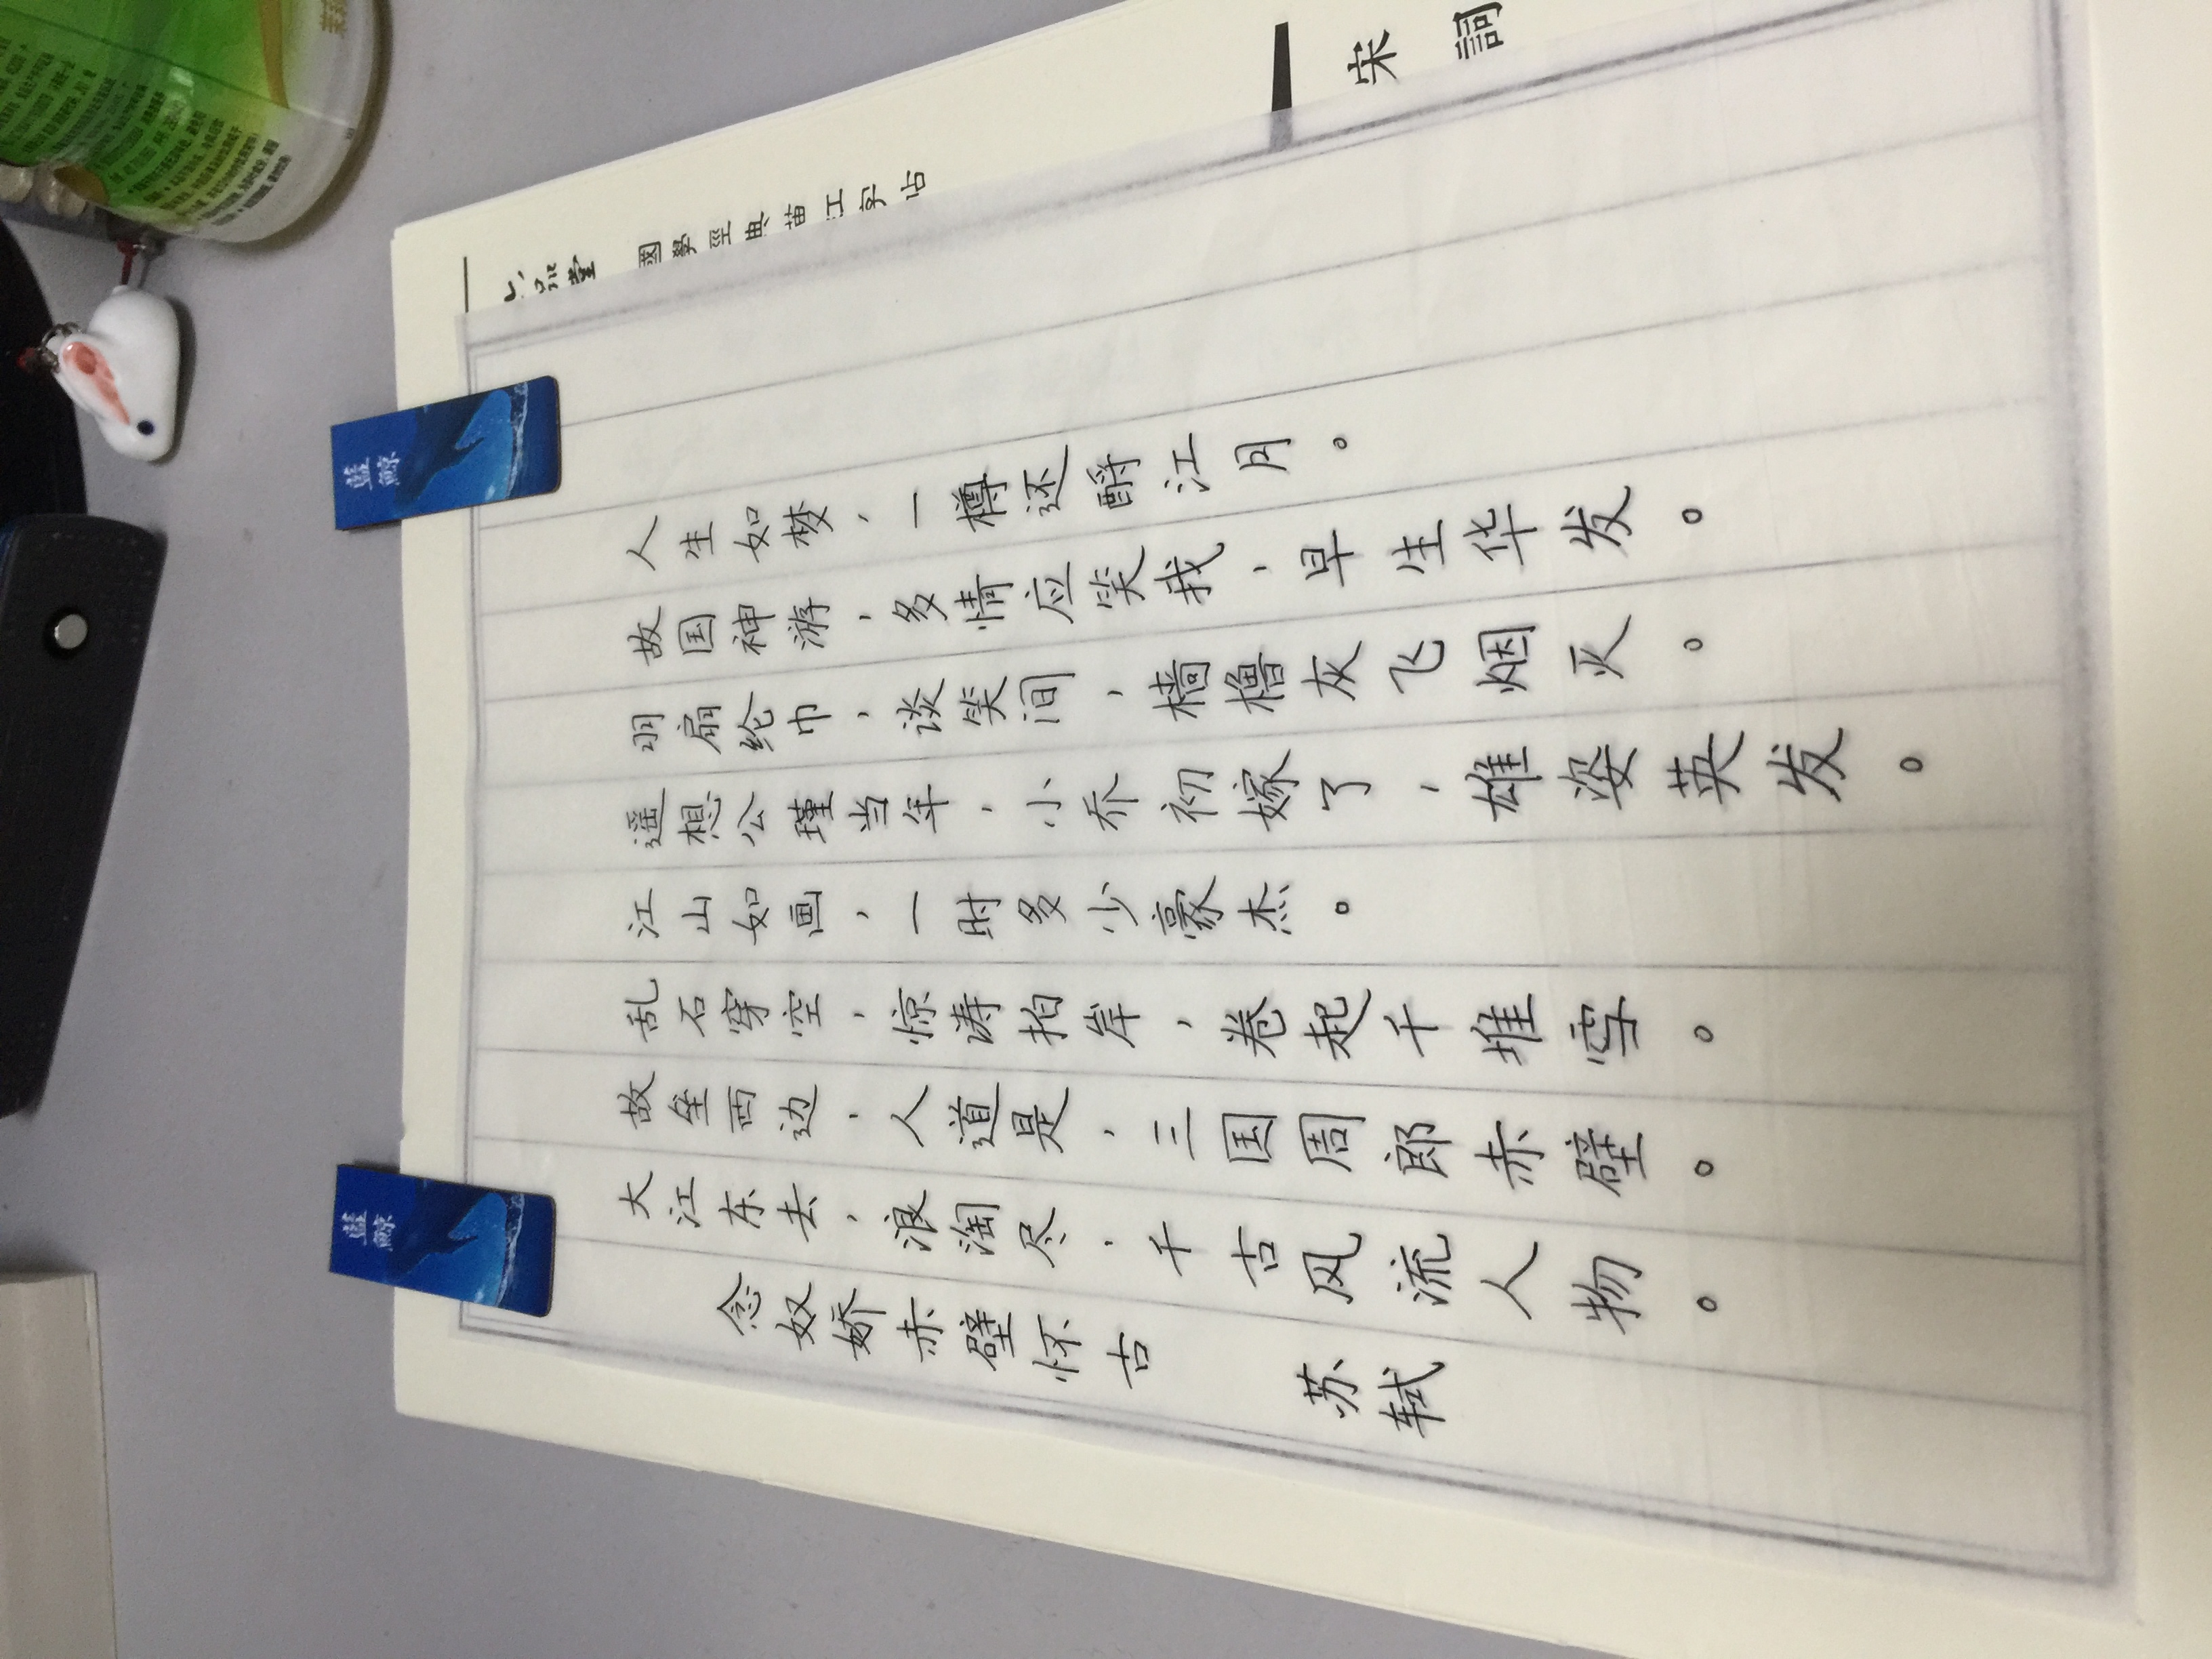 念奴娇赤壁怀古 苏轼
大江东去，浪淘尽，千古风流人物。
故垒西边，人道是，三国周郎赤壁。
乱石穿空，惊涛拍岸，卷起千堆雪。
江山如画，一时多少豪杰。
遥想公瑾当年，小乔初嫁了，雄姿英发。
羽扇纶巾，谈笑间，樯橹灰飞烟灭。
故国神游，多情应笑我，早生华发。
人生如梦，一樽还酹江月。
六品堂
國學經典苗红字帖
宋詞
藍鯨
藍鯨